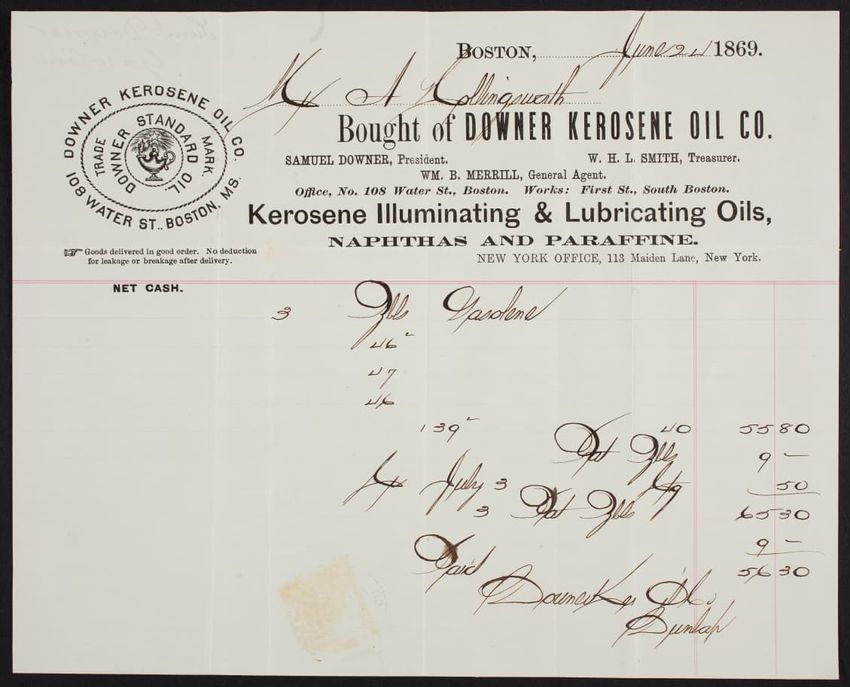 BOSTON, June 24 1869.
Mr A Hollingsworth
Bought of DOWNER KEROSENE OIL CO.
SAMUEL DOWNER, President. W. H. L. SMITH, Treasurer.
WM. B. MERRILL, General Agent.
Office, No. 108 Water St., Boston. Works: First St., South Boston.
Kerosene Illuminating & Lubricating Oils,
NAPHTHAS AND PARAFFINE.
NEW YORK OFFICE, 113 Maiden Lane, New York.
DOWNER KEROSENE OIL CO
108 WATER ST., BOSTON, MS.
TRADE MARK
DOWNER STANDARD OIL
☞ Goods delivered in good order. No deduction
for leakage or breakage after delivery.
NET CASH.
3 Bbls Gasolene
46
47
46
139 40 55 80
Pat Bbls 9 –
50
July 3
3 Pat Bbls 65 30
9 –
Paid 56 30
Downer Ker O Co
Dunlap